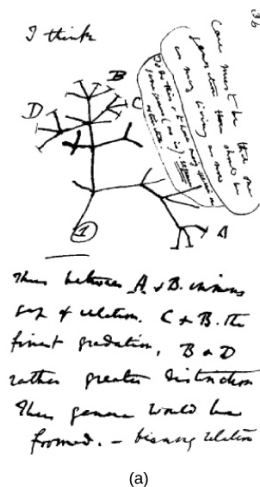 36
I think
Case must be that one
generation then should be
as many living as now
To do this & to have many species in
same genus (as is) requires
extinction
B
D
C
A
1
Thus between A & B. immense
gap of relation. C & B. the
finest gradation, B & D
rather greater distinction
Thus genera would be
formed. — bearing relation
(a)